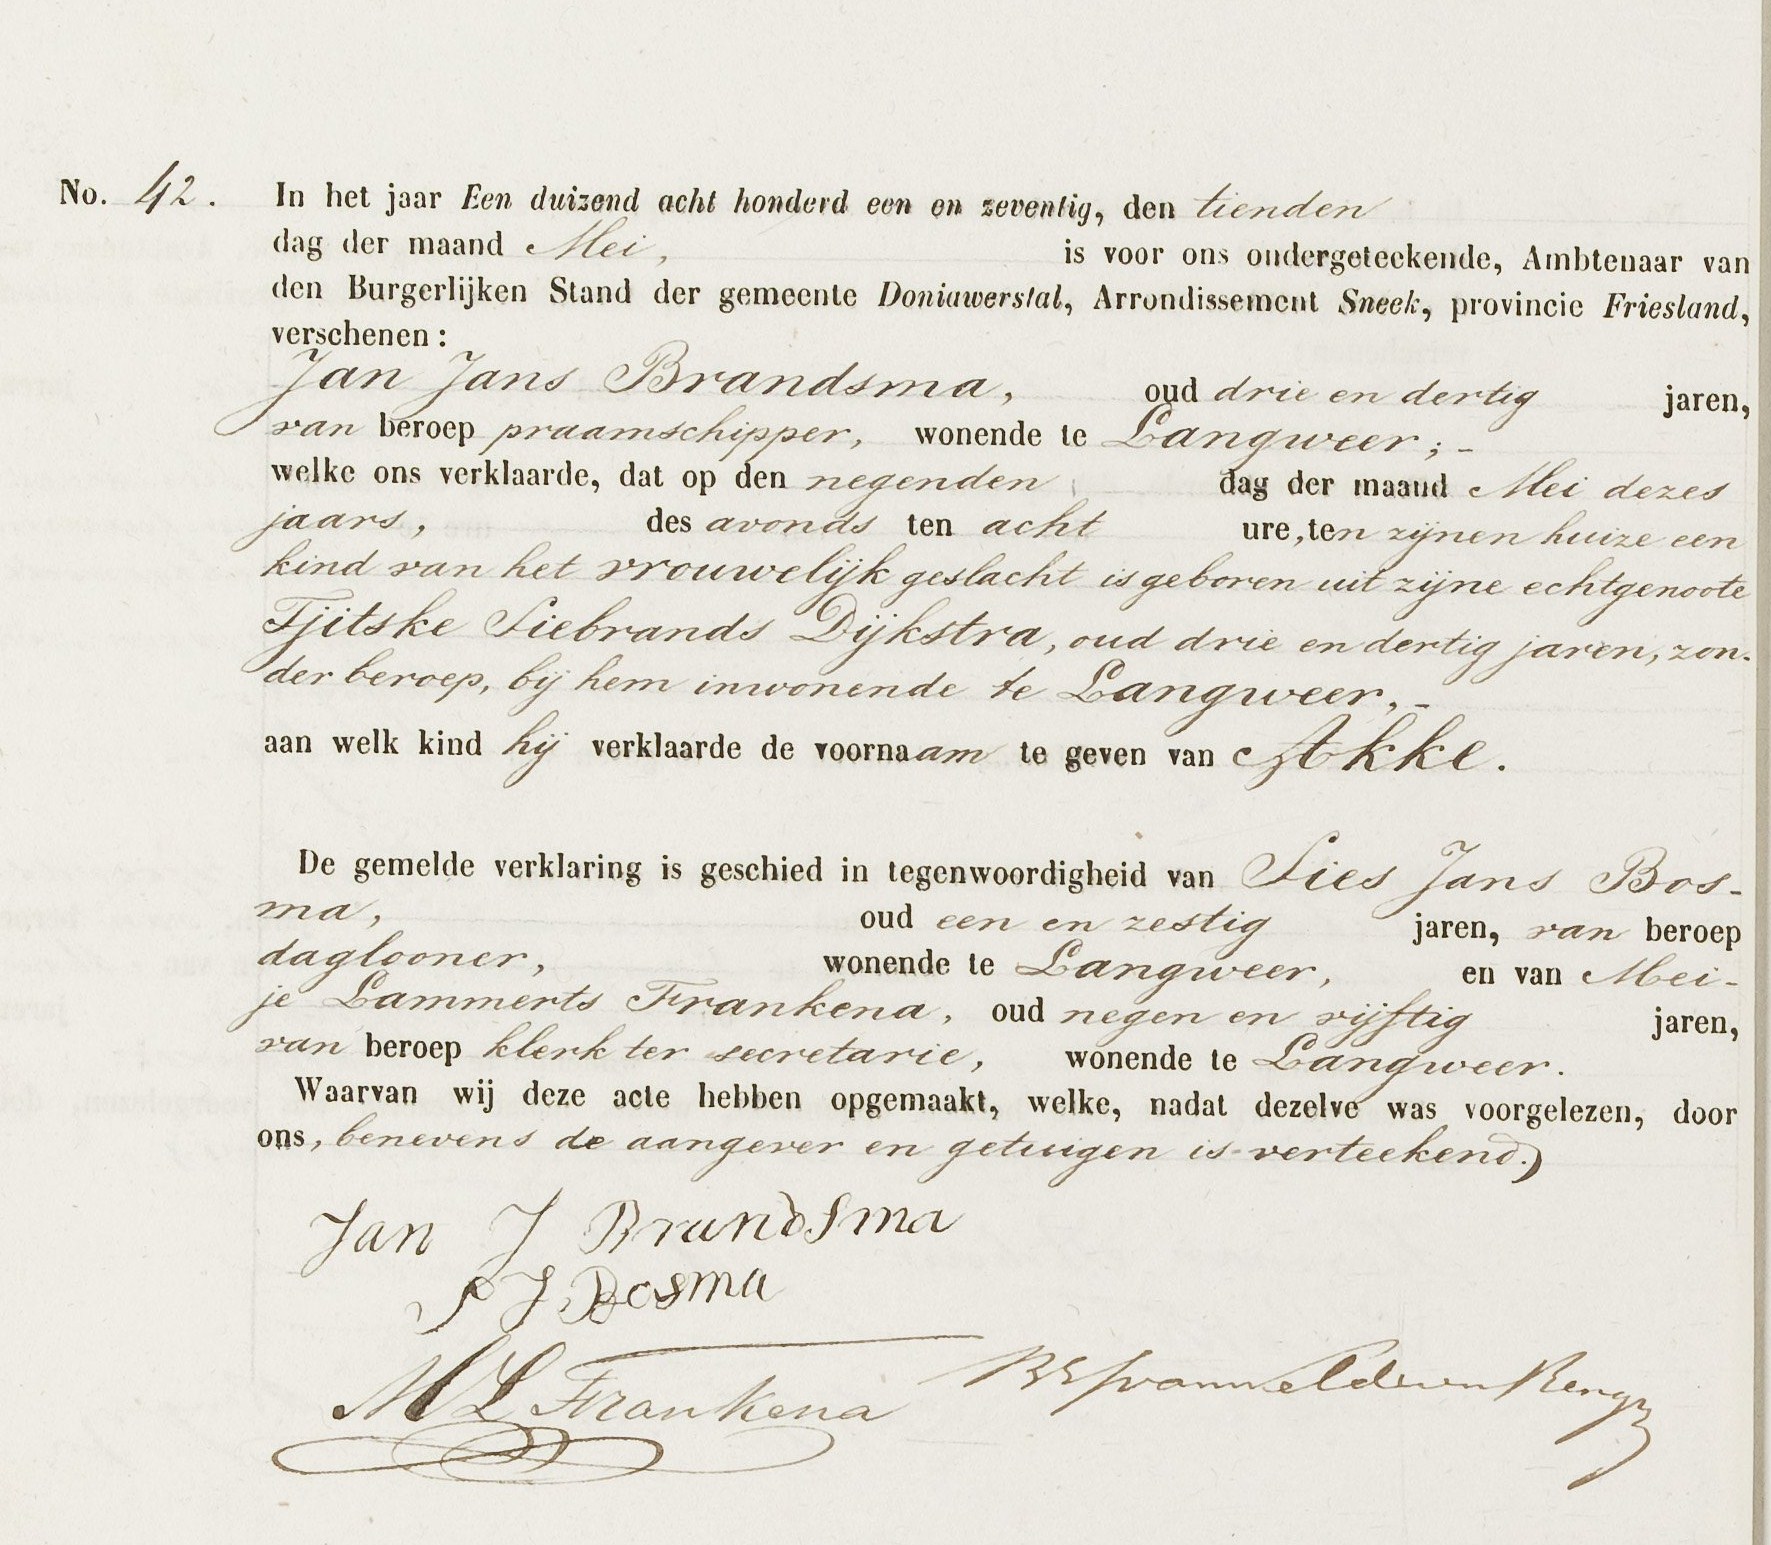 No. 42. In het jaar Een duizend acht honderd een en zeventig, den tienden
dag der maand Mei, is voor ons ondergeteekende, Ambtenaar van
den Burgerlijken Stand der gemeente Doniawerstal, Arrondissement Sneek, provincie Friesland,
verschenen:
Jan Jans Brandsma, oud drie en dertig jaren,
van beroep praamschipper, wonende te Langweer;-
welke ons verklaarde, dat op den negenden dag der maand Mei dezes
jaars, des avonds ten acht ure, ten zijnen huize een
kind van het vrouwelijk geslacht is geboren uit zijne echtgenoote
Tjitske Siebrands Dijkstra, oud drie en dertig jaren, zon-
der beroep, bij hem inwonende te Langweer,-
aan welk kind hij verklaarde de voornaam te geven van Akke.
De gemelde verklaring is geschied in tegenwoordigheid van Sies Jans Bos-
ma, oud een en zestig jaren, van beroep
daglooner, wonende te Langweer, en van Mei-
je Lammerts Frankena, oud negen en vijftig jaren,
van beroep klerk ter secretarie, wonende te Langweer.
Waarvan wij deze acte hebben opgemaakt, welke, nadat dezelve was voorgelezen, door
ons, benevens de aangever en getuigen is verteekend.)
Jan J Brandsma
S J Bosma
M L Frankena